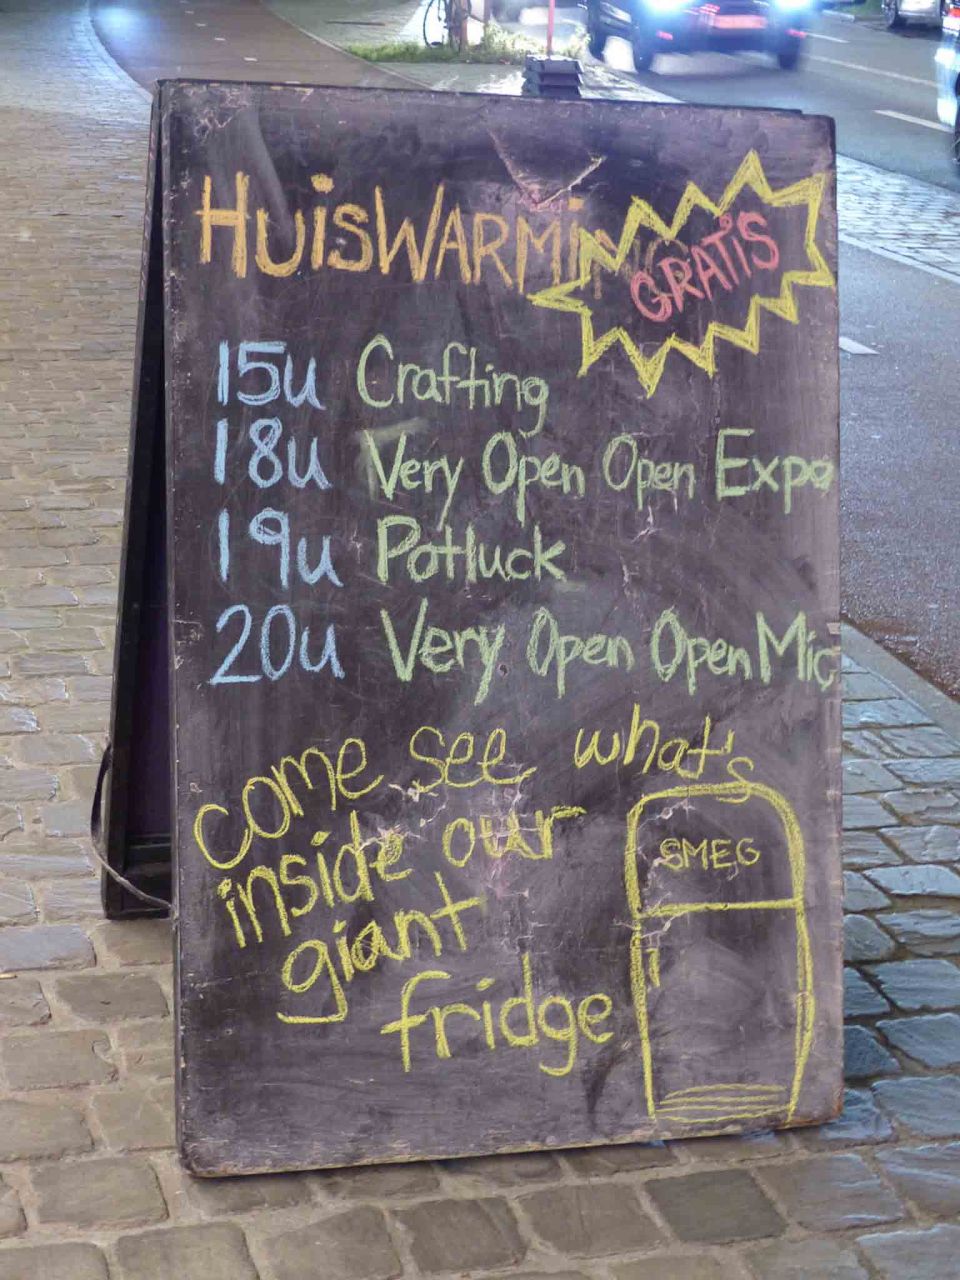 HUiSWARMiNG
GRATiS
15u Crafting
18u Very Open Open Expo
19u Potluck
20u Very Open Open Mic
come see what's
inside our
giant
fridge
SMEG